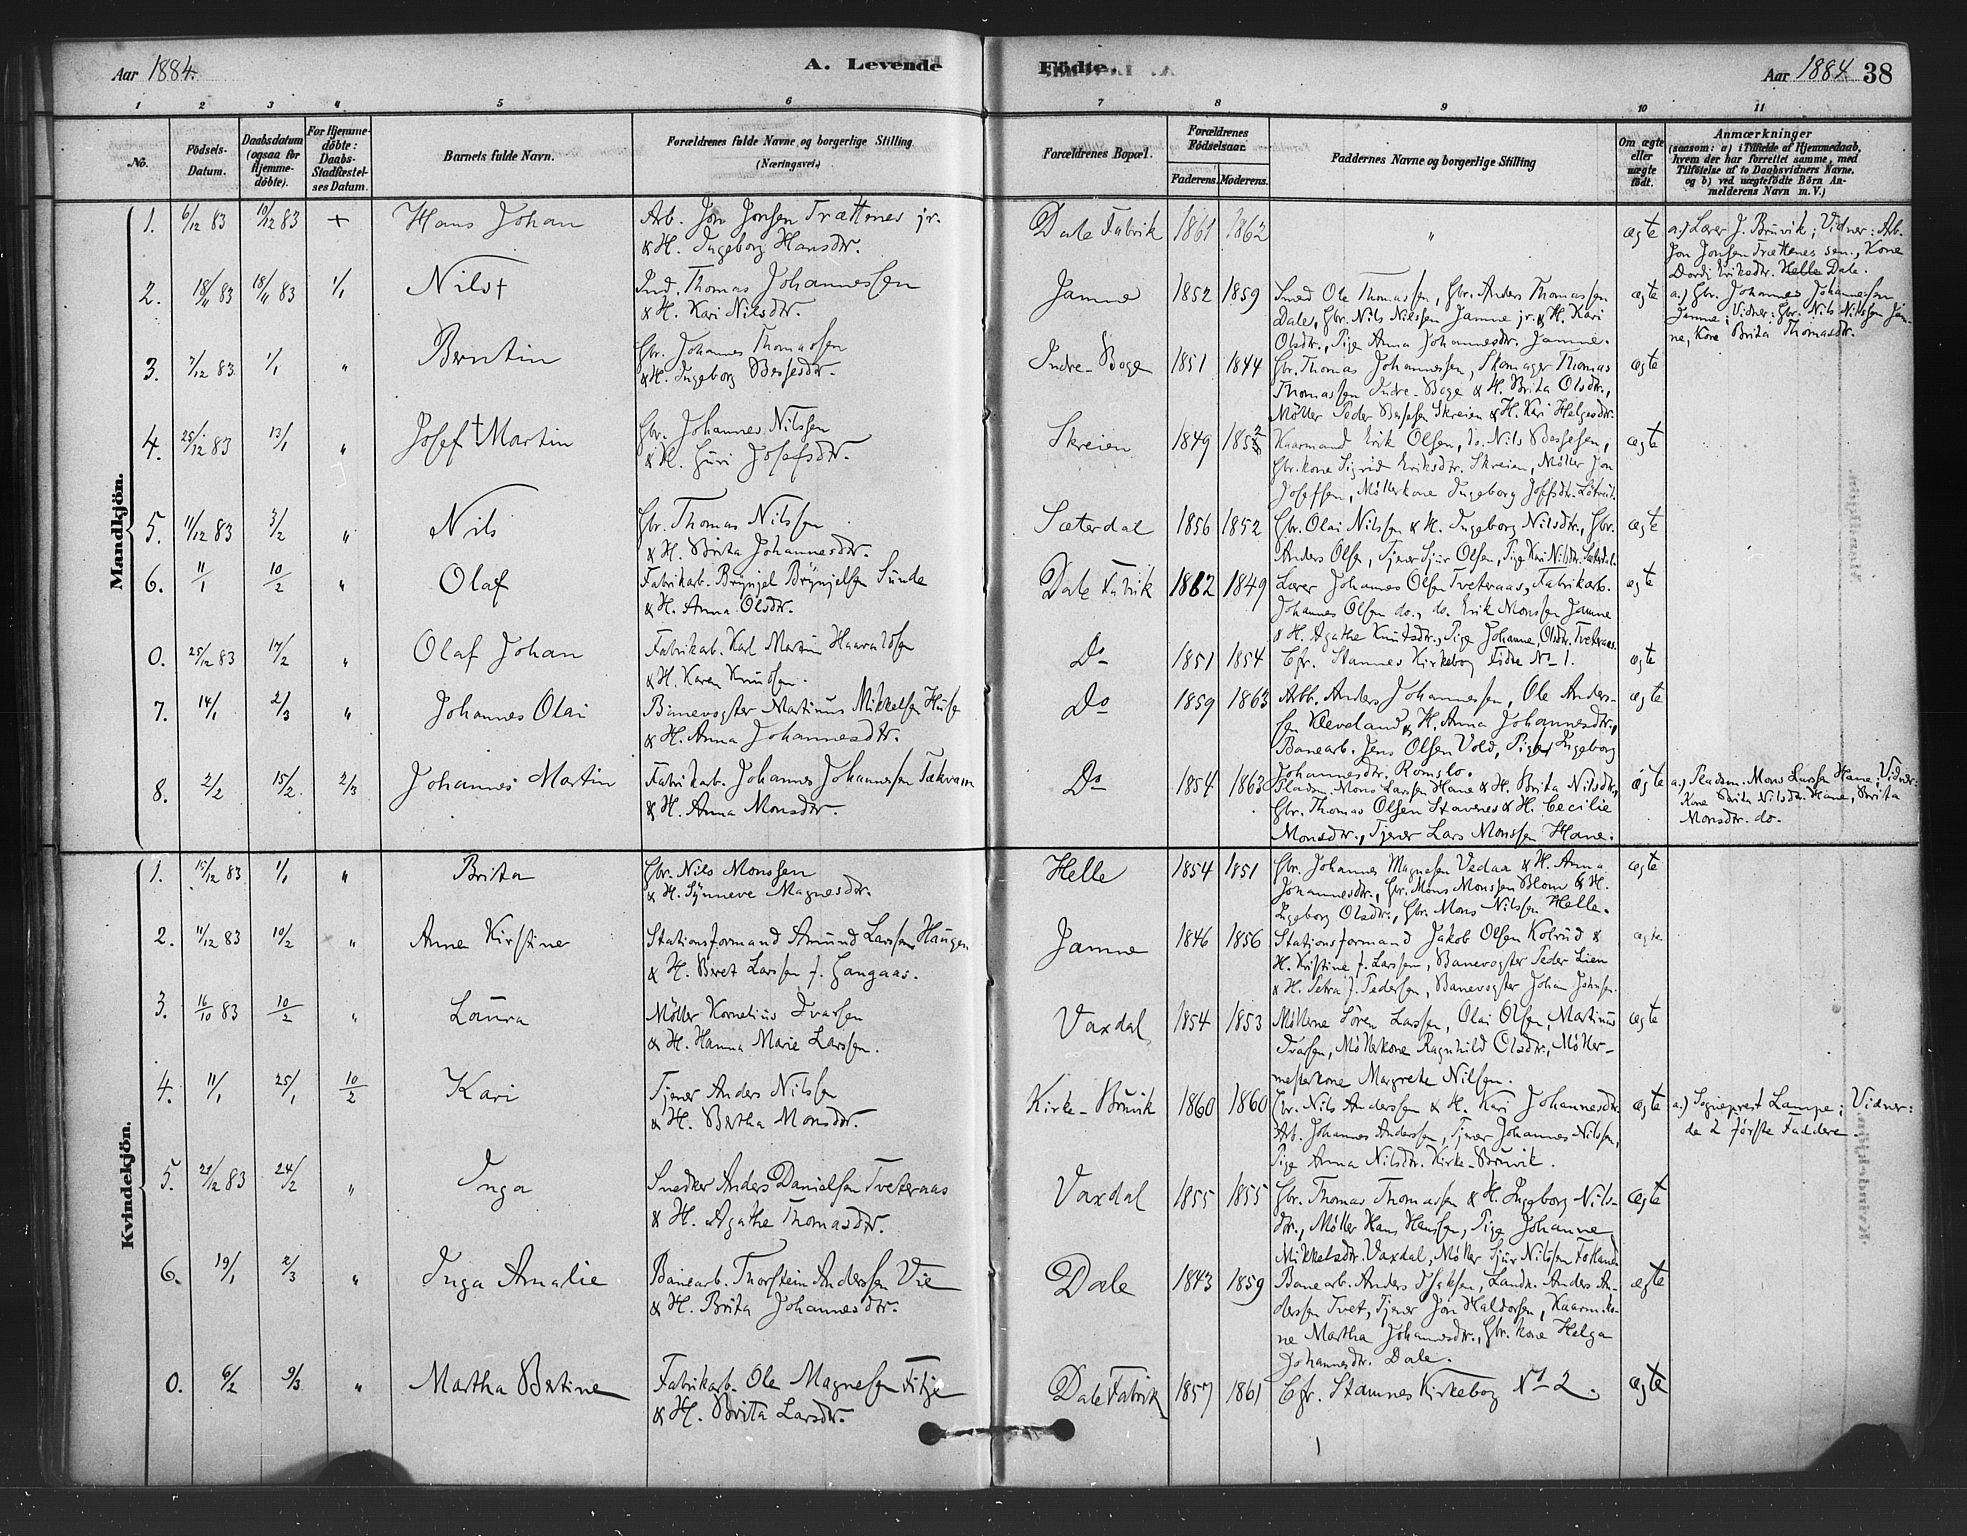 Aar 1884.
A. Levende
Fødte.
Aar 1884. 38
1 2 3 " 5 6 7 8 9 10 11
No.
Fødsels-
Datum.
Daabsdatum
(ogsaa for
Hjemme-
döbte).
For Hjemme-
döbte:
Daabs-
Stadfæstel-
ses Datum.
Barnets fulde Navn.
Forældrenes fulde Navne og borgerlige Stilling
(Næringsvei.)
Forældrenes Bopæl.
Forældrenes
Födselsaar.
Faderens. Moderens.
Faddernes Navne og borgerlige Stilling
Om ægte
eller
uægte
født.
Anmærkninger
(saasom: a) i Tilfælde af Hjemmedaab,
hvem der har forrettet samme, med
Tilföielse af to Daabsvidners Navne,
og b) ved uægtefödte Börn An-
melderens Navn m. V.)
Mandkjön.
1. 6/12 83 19/12 83 + Hans Johan
Arb. Jon Jonsen Trættenes jr.
& H. Ingeborg Hansdtr.
Dale Fabrik 1861 1862 " ægte
a.) Lærer J. Bruvik; Vidner: Arb.
Jon Jonsen Trættenes sen., Kone
Dordi Eriksdtr. Helle Dale.
2. 18/11 83 18/11 83 1/1 Nils +
Ind. Thomas Johannessen
& H. Kari Nilsdtr.
Jamne 1852 1859
Smed Ole Thomassen, Gbr. Anders Thomassen
Dale, Gbr. Nils Nilssen Jamne jr. & H. Kari
Olsdtr., Pige Anna Johannesdtr. Jamne.
ægte
a.) Gbr. Johannes Johannessen
Jamne; Vidner: Gbr. Nils Nilssen Jam-
ne, Kone Brita Thomasdtr.
3. 7/12 83 1/1 " Berntin
Gbr. Johannes Thomassen
& H. Ingeborg Bessesdtr.
Indre-Boge 1851 1844
Gbr. Thomas Johannessen, Skomager Thomas
Thomassen Indre-Boge & H. Brita Olsdtr.,
Møller Peder Bessesen Skreien & H. Kari Helgesdtr.
ægte
4. 25/12 83 13/1 " Josef + Martin
Gbr. Johannes Nilssen
& H. Guri Josefsdtr.
Skreien 1849 1852
Kaarmand Erik Olsen, do. Nils Bessesen,
Gbr.kone Sigrid Eriksdtr. Skreien, Møller Jon
Josefsen, Møllerkone Ingeborg Josefsdtr.
ægte
5. 11/12 83 3/2 " Nils
Gbr. Thomas Nilssen
& H. Brita Johannesdtr.
Sæterdal 1856 1852
Gbr. Olai Nilssen & H. Ingeborg Nilsdtr., Gbr.
Anders Olsen, Tjener Sjur Olsen, Pige Kari Nilsdtr. Sæterdal.
ægte
6. 11/1 10/2 " Olaf
Fabrikarb. Brynjel Brynjelsen Sunde
& H. Anna Olsdtr.
Dale Fabrik 1862 1849
Lærer Johannes Olsen Tveteraas, Fabrikarb.
Johannes Olsen do., do. Erik Monssen Jamne
& H. Agathe Knutsdtr., Pige Johanne Olsdtr. Tveteraas.
ægte
0. 25/12 83 17/2 " Olaf Johan
Fabrikarb. Karl Martin Haavaldsen
& H. Karen Knudsen.
Do 1851 1854 Cfr. Stamnes Kirkebog Fødte No 1. ægte
7. 14/1 2/3 " Johannes Olai
Banevogter Martinus Mikkelsen Huse
& H. Anna Johannesdtr.
Do 1859 1863
Arb. Anders Johannessen, Ole Anders-
sen Kleveland, H. Anna Johannesdtr.,
Banearb. Jens Olsen Vold, Pige Ingeborg
Johannesdtr. Romslo.
ægte
8. 2/2 15/2 2/3 Johannes Martin
Fabrikarb. Johannes Johannessen Takvam
& H. Anna Monsdtr.
Do 1854 1863
Pladsm. Mons Larssen Hane & H. Brita Nilsdtr.,
Gbr. Thomas Olsen Stavenes & H. Cecilie
Monsdtr., Tjener Lars Monssen Hane.
ægte
a.) Pladsm. Mons Larssen Hane; Vidner:
Kone Brita Nilsdtr. Hane, Brita
Monsdtr. do.
Kvindekjön.
1. 15/12 83 1/1 " Brita
Gbr. Nils Monssen
& H. Synneve Magnesdtr.
Helle 1854 1851
Gbr. Johannes Magnesen Vedaa & H. Anna
Johannesdtr., Gbr. Mons Monssen Blom & H.
Ingeborg Olsdtr., Gbr. Mons Nilssen Helle.
ægte
2. 11/12 83 10/2 " Anne Kirstine
Stationsformand Amund Larssen Haugen
& H. Beret Larssen f. Gangaas.
Jamne 1846 1856
Stationsformand Jakob Olsen Kolrud &
H. Kristine f. Larssen, Banevogter Peder Lien
& H. Petra f. Pedersen, Banevogter Johan Johnsen.
ægte
3. 16/10 83 10/2 " Laura
Møller Kornelius Ivarsen
& H. Hanna Marie Larssen.
Vaxdal 1854 1853
Møllerne Sören Larssen, Olai Olsen, Martinus
Ivarsen, Møllerkone Ragnhild Olsdtr., Møller-
mesterkone Margrete Nilsen.
ægte
4. 11/1 25/1 10/2 Kari
Tjener Anders Nilssen
& H. Bertha Monsdtr.
Kirke-Bruvik 1860 1860
Gbr. Nils Anderssen & H. Kari Johannesdtr.
Arb. Johannes Anderssen, Tjener Johannes Nilssen,
Pige Anna Nilsdtr. Kirke-Bruvik.
ægte
a.) Sogneprest Lampe; Vidner:
de 2 første Faddere.
5. 29/12 83 24/2 " Inga
Snedker Anders Danielsen Tveteraas
& H. Agathe Thomasdtr.
Vaxdal 1855 1855
Gbr. Thomas Thomassen & H. Ingeborg Nils-
dtr., Møller Hans Hanssen, Pige Johanne
Mikkelsdtr. Vaxdal, Møller Sjur Nilssen
ægte
6. 19/1 2/3 " Inga Amalie
Banearb. Thorstein Anderssen Vie
& H. Brita Johannesdtr.
Dale 1843 1859
Banearb. Anders Isaksen, Landh. Anders An-
derssen Tvet, Tjener Jon Haldorsen, Kaarmdsko-
ne Martha Johannesdtr., Gbr. kone Helga
Johannesdtr. Dale.
ægte
0. 6/2 9/3 " Martha Bertine
Fabrikarb. Ole Magnesen Fitje
& H. Britta Larsdtr.
Dale Fabrik 1857 1861 Cfr. Stamnes Kirkebog No 2. ægte